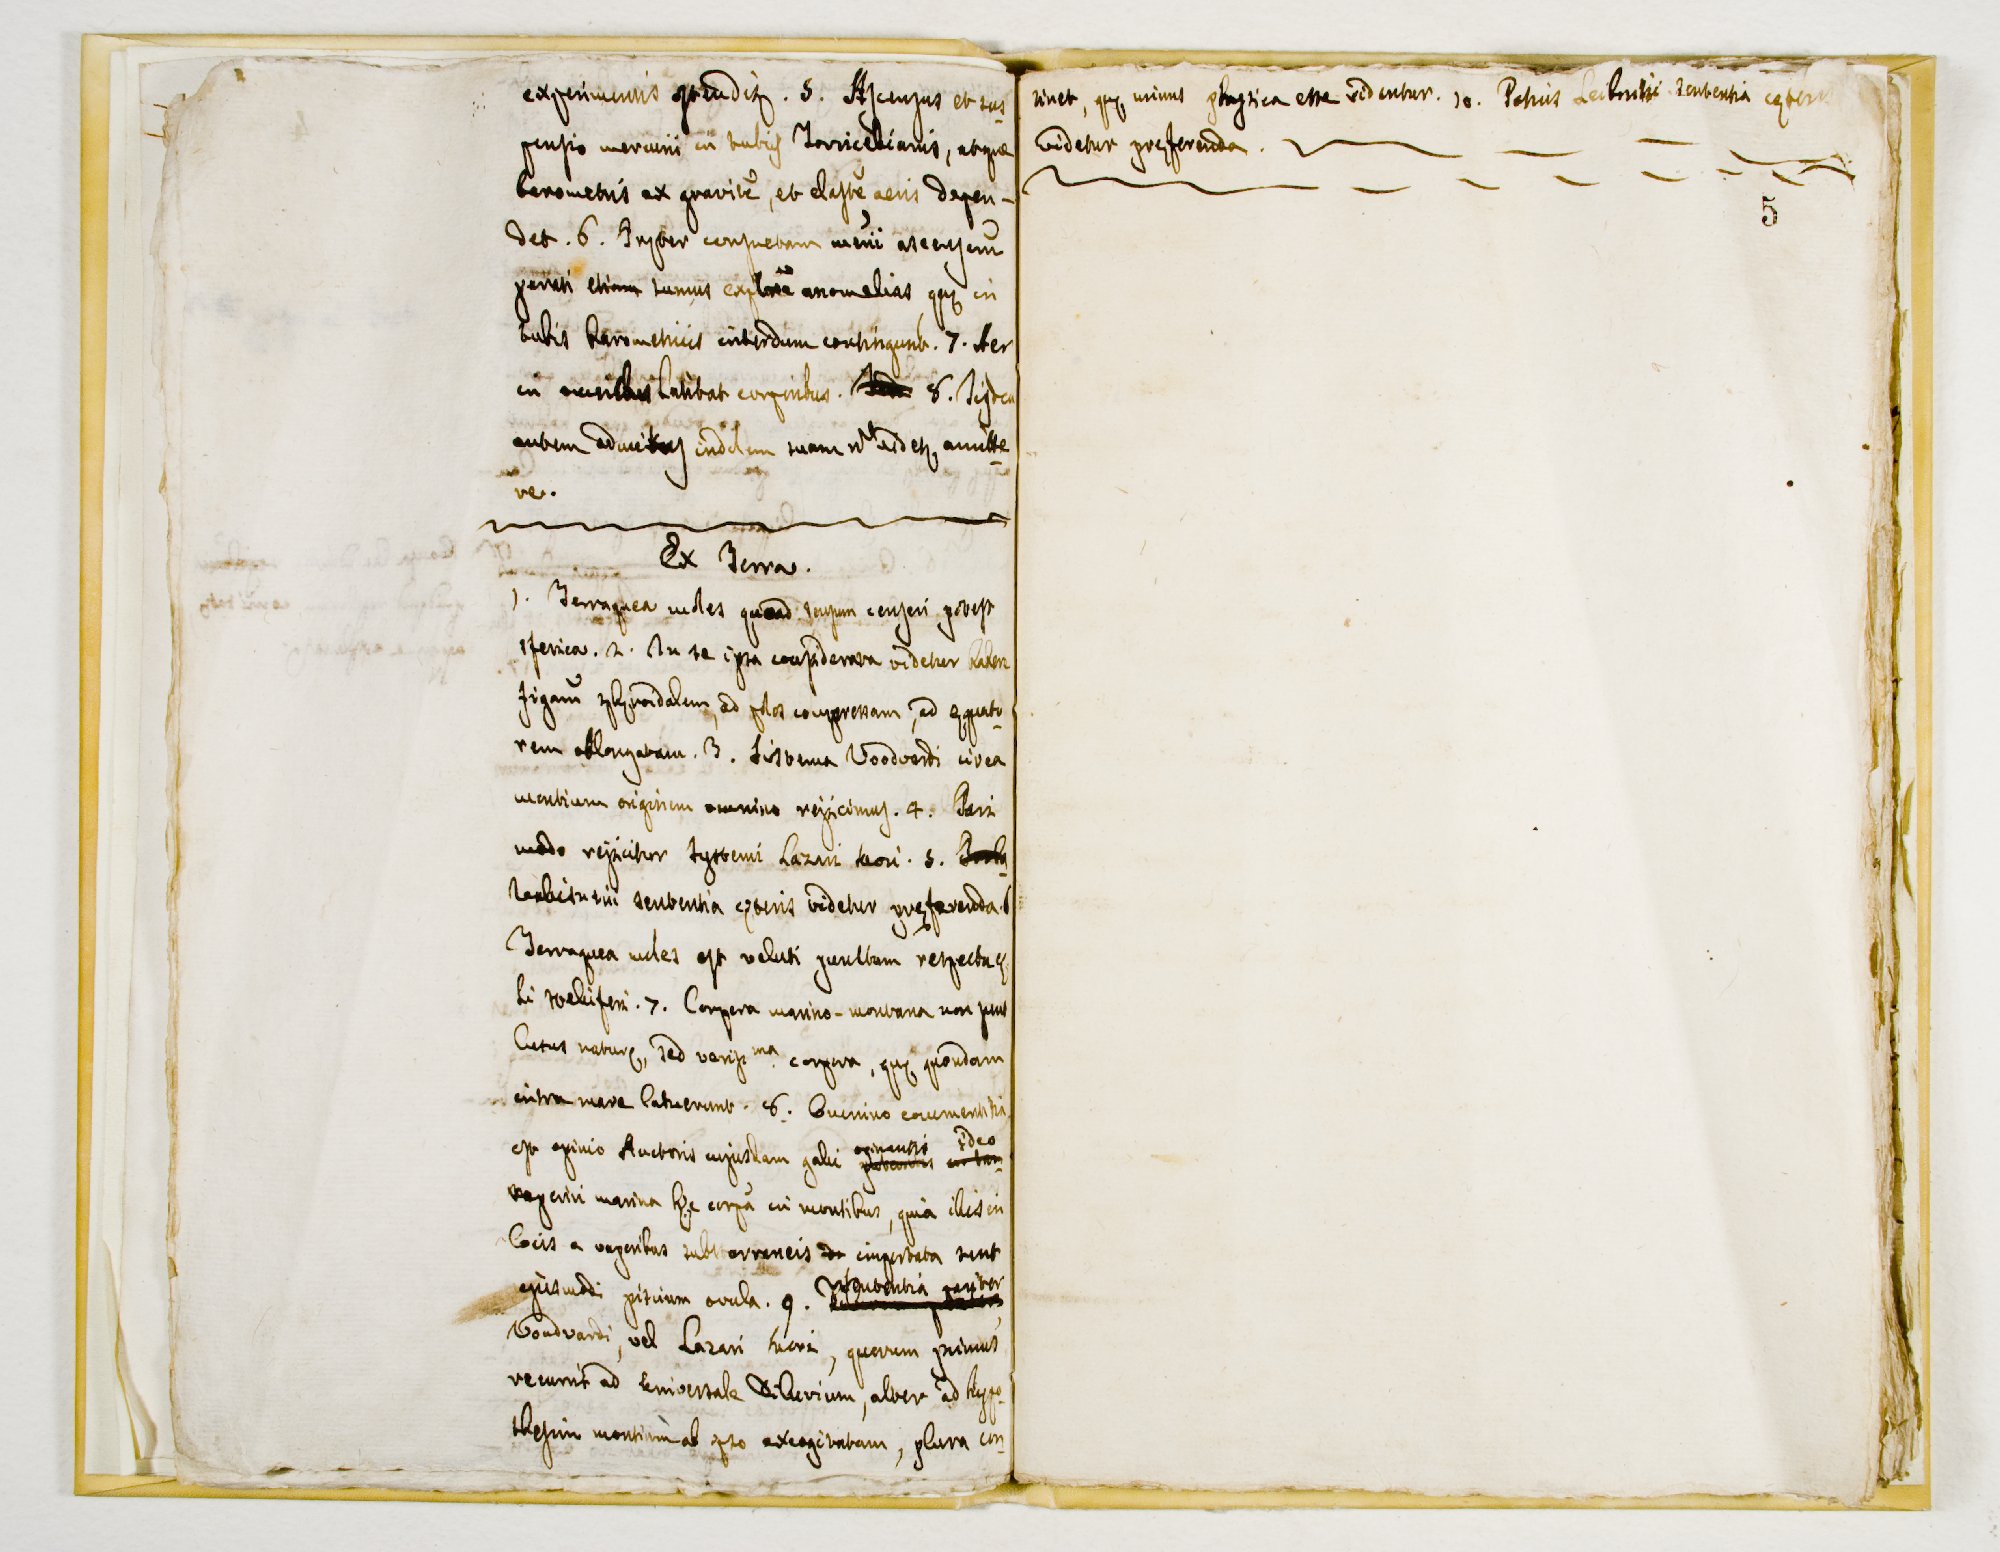 experimentis ostendit. 5. Ascensus et sus-
pensio mercurii in tubis Torricellianis, atque
barometris ex gravitẽ, et elastẽ aeris depen-
det. 6. Inter consuetam mẽrii ascensum
periti etiam sumus anomalias, quę in
tubis barometricis interdum contingunt. 7. Aer
in omnibus latitat corporibus. 8.
autem indolem suam nt. videtę, amitte-
re.
Ex Terra.
1. Terraquea moles quoad sensum censeri potest
sferica. 2. In se ipsa considerata videtur habere
figarũ spheroidalem, ad polos compressam, ad ęquato-
rem oblongatam. 3. Sistema Voodvardi circa
montium originem omnino rejicimus. 4. Pari
modo rejicitur systema Lazari Mori. 5.
sententia cęteris videtur pręferenda. 6
Terraquea moles est veluti punctum respectu cę-
li stelliferi. 7. Corpora marino-montana non sunt
lusus naturę, sed veriss.ma corpora, quę quondam
intra mare latuerunt. 8. Omnino commentitia
est opinio Auctoris cujusdam galli opinantis ideo
reperiri marina hęc corpã in montibus, quia illis in
locis a vaporibus subterraneis importata sunt
ejusmodi piscium ovula. 9. Sententia pariter
Voodvardi, vel Lazari Mori, quorum primus
recurrit ad universale Diluvium, alter ad hypo-
thesim montium ab ipso excogitatam, plura con-
tinet, quę minus physica esse videntur. 10. Potius Leibnitii sententia cęteris
videtur pręferenda.
5